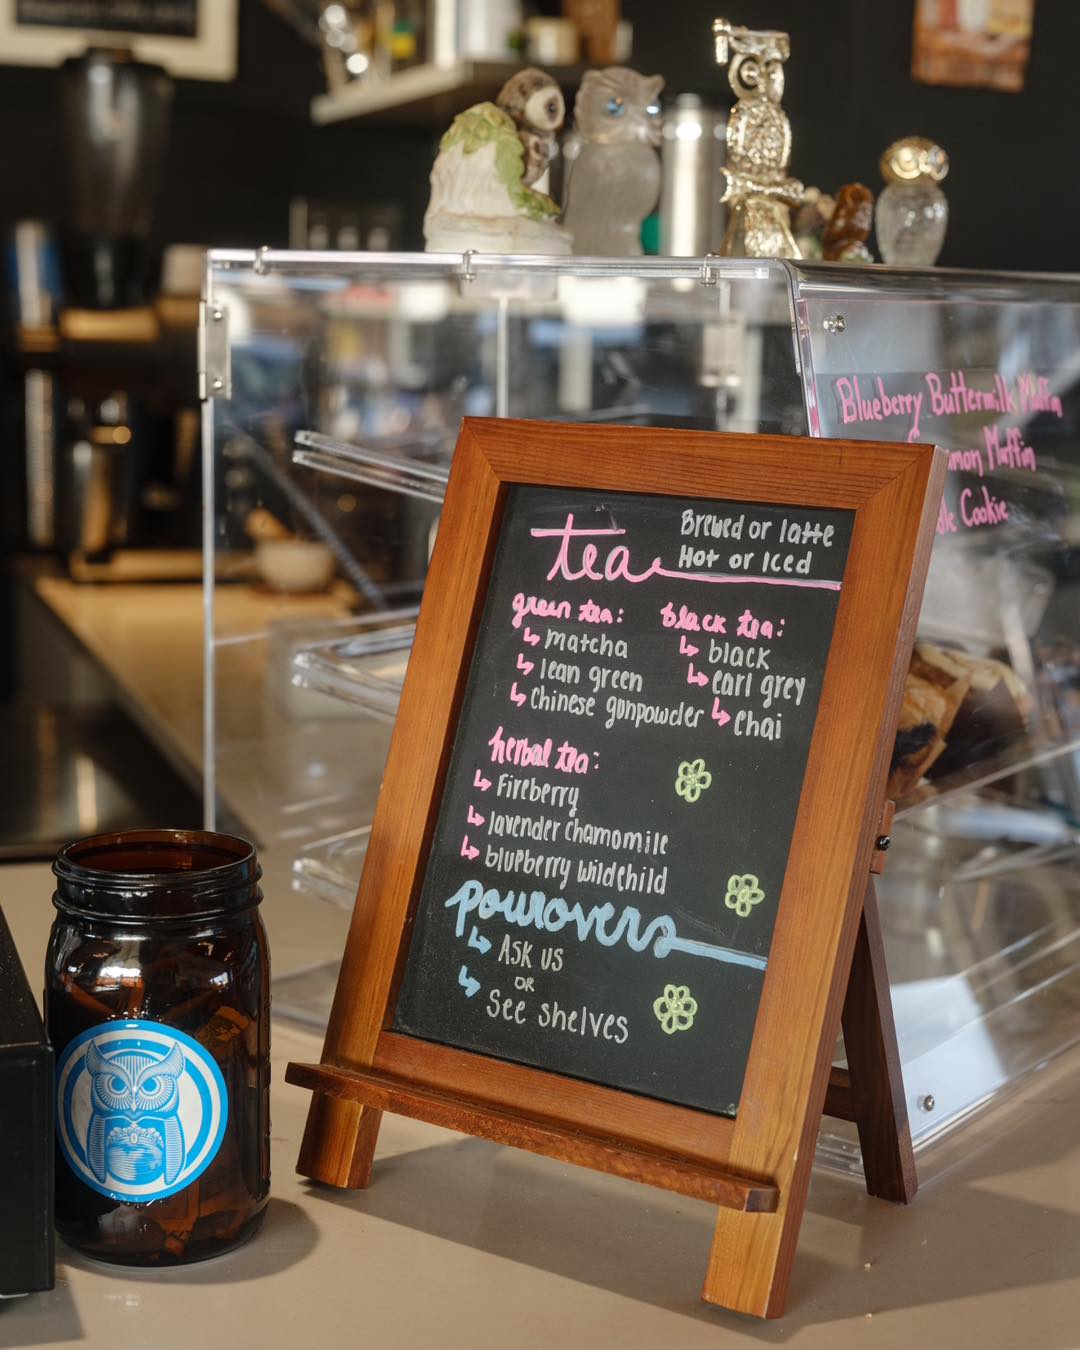 tea
Brewed or latte
Hot or Iced
green tea:
matcha
lean green
Chinese gunpowder
black tea:
black
earl grey
chai
herbal tea:
Fireberry
lavender chamomile
blueberry wildchild
pourovers
ASK US
OR
See Shelves
Blueberry Buttermilk Muffin
Muffin
Cookie